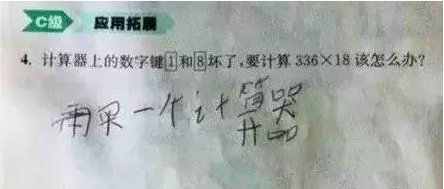 C级 应用拓展
4. 计算器上的数字键1和8坏了,要计算336×18该怎么办?
再买一个计算器